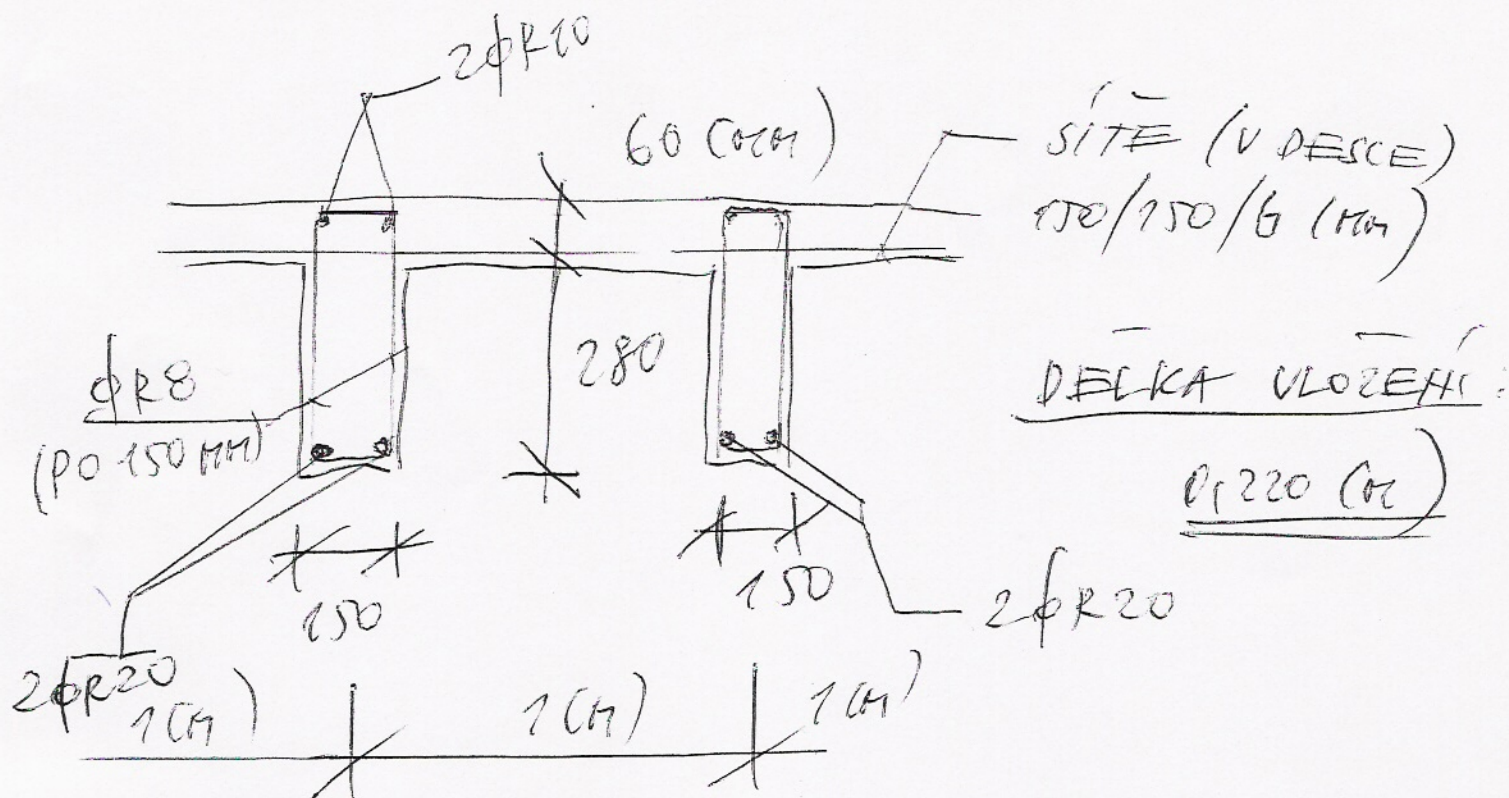 2ϕR10
60 (mm)
SÍTĚ (V DESCE)
150/150/6 (mm)
280
ϕR8
(PO 150 MM)
DÉLKA VLOŽENÍ:
0,220 (m)
150
150
2ϕR20
2ϕR20
1(m)
1(m)
1(m)